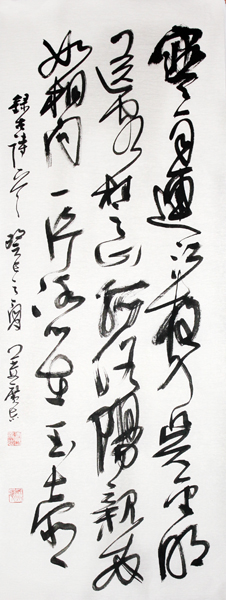 寒雨連江夜入吳平明
送客楚山孤洛陽親友
如相問一片冰心在玉壺
錄古詩一首癸巳之夏